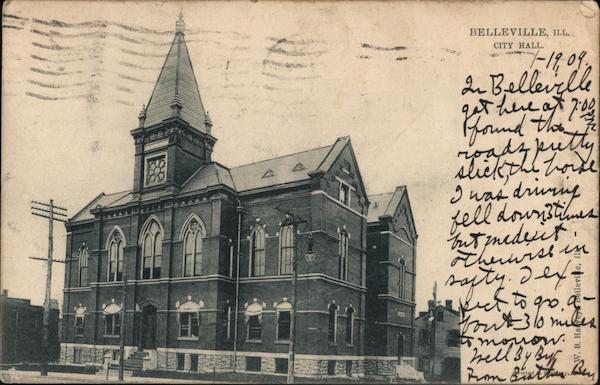 BELLEVILLE, ILL.
CITY HALL.
1-19 09.
In Belleville
got here at 7:00
I found the
roads pretty
slick, the horse
I was driving
fell down 5 times
but made it
otherwise in
safty. I ex-
pect to go a-
bout 30 miles
to morrow.
Well By By
From Brother Ben
W. B. Belleville, Ill.